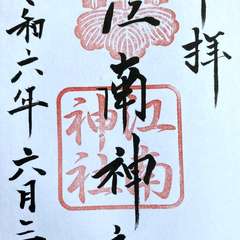 拝
江南神
江南神社
令和六年 六月